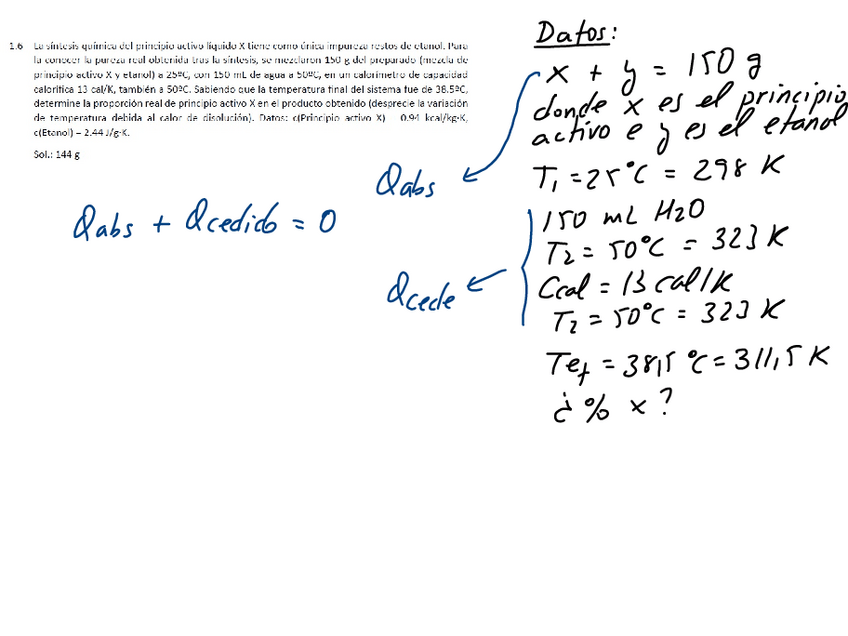 1.6 La síntesis química del principio activo líquido X tiene como única impureza restos de etanol. Para
la conocer la pureza real obtenida tras la síntesis, se mezclaron 150 g del preparado (mezcla de
principio activo X y etanol) a 25ºC, con 150 mL de agua a 50ºC, en un calorímetro de capacidad
calorífica 13 cal/K, también a 50ºC. Sabiendo que la temperatura final del sistema fue de 38.5ºC,
determine la proporción real de principio activo X en el producto obtenido (desprecie la variación
de temperatura debida al calor de disolución). Datos: c(Principio activo X) = 0.94 kcal/kg·K,
c(Etanol) = 2.44 J/g·K.
Sol.: 144 g
Qabs + Qcedido = 0
Qabs
Qcede
Datos:
x + y = 150 g
donde x es el principio
activo e y es el etanol
T1 = 25°C = 298 K
150 mL H2O
T2 = 50°C = 323 K
Ccal = 13 cal/K
T2 = 50°C = 323 K
Tef = 38,5 °C = 311,5 K
¿% x?